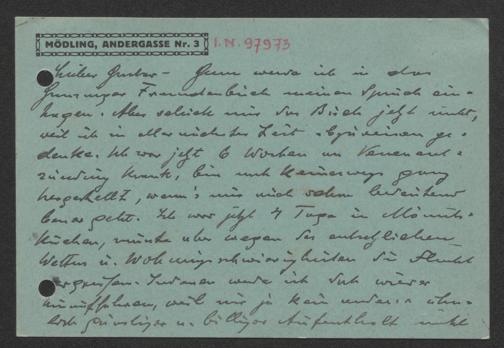 MÖDLING, ANDERGASSE Nr. 3 I.N. 97973
Lieber Gustav – Gern werde ich in das
Freundenbuch meinen Spruch ein-
tragen. Aber schick mir das Buch jetzt nicht,
weil ich in allernächster Zeit abzureisen ge-
denke. Ich war jetzt 6 Wochen an Venenent-
zündung krank, bin noch keineswegs ganz
hergestellt, wenn's mir auch schon bedeutend
besser geht. Ich war jetzt 4 Tage in
München, musste aber wegen des entsetzlichen
Wetters u. Wohnungsschwierigkeiten die Flucht
ergreifen. werde ich doch wieder
weil mir ja kein anderer ähn-
lich günstiger u. billiger Aufenthalt